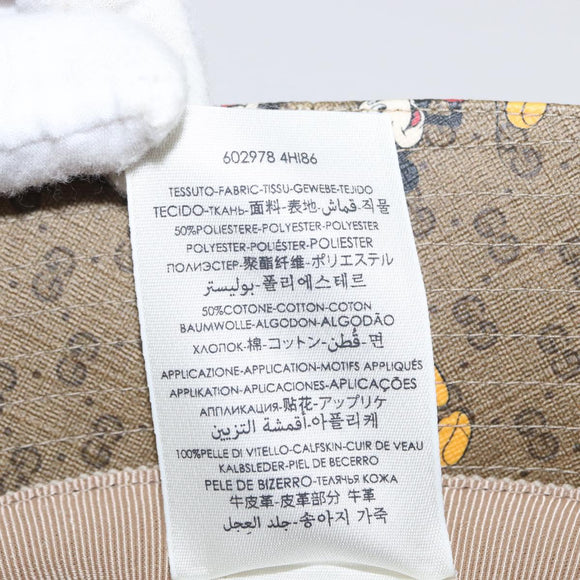 602978 4HI86
TESSUTO-FABRIC-TISSU-GEWEBE-TEJIDO
TECIDO-ТКАНЬ-面料-表地-قماش-직물
50%POLIESTERE-POLYESTER-POLYESTER
POLYESTER-POLIÉSTER-POLIESTER
ПОЛИЭСТЕР-聚酯纤维-ポリエステル
بوليستر-폴리에스테르
50%COTONE-COTTON-COTON
BAUMWOLLE-ALGODON-ALGODÃO
ХЛОПОК-棉-コットン-قُطن-면
APPLICAZIONE-APPLICATION-MOTIFS APPLIQUÉS
APPLIKATION-APLICACIONES-APLICAÇÕES
АППЛИКАЦИЯ-贴花-アップリケ
أقمشة التزيين-아플리케
100%PELLE DI VITELLO-CALFSKIN-CUIR DE VEAU
KALBSLEDER-PIEL DE BECERRO
PELE DE BIZERRO-ТЕЛЯЧЬЯ КОЖА
牛皮革-皮革部分 牛革
جلد العِجل-송아지 가죽